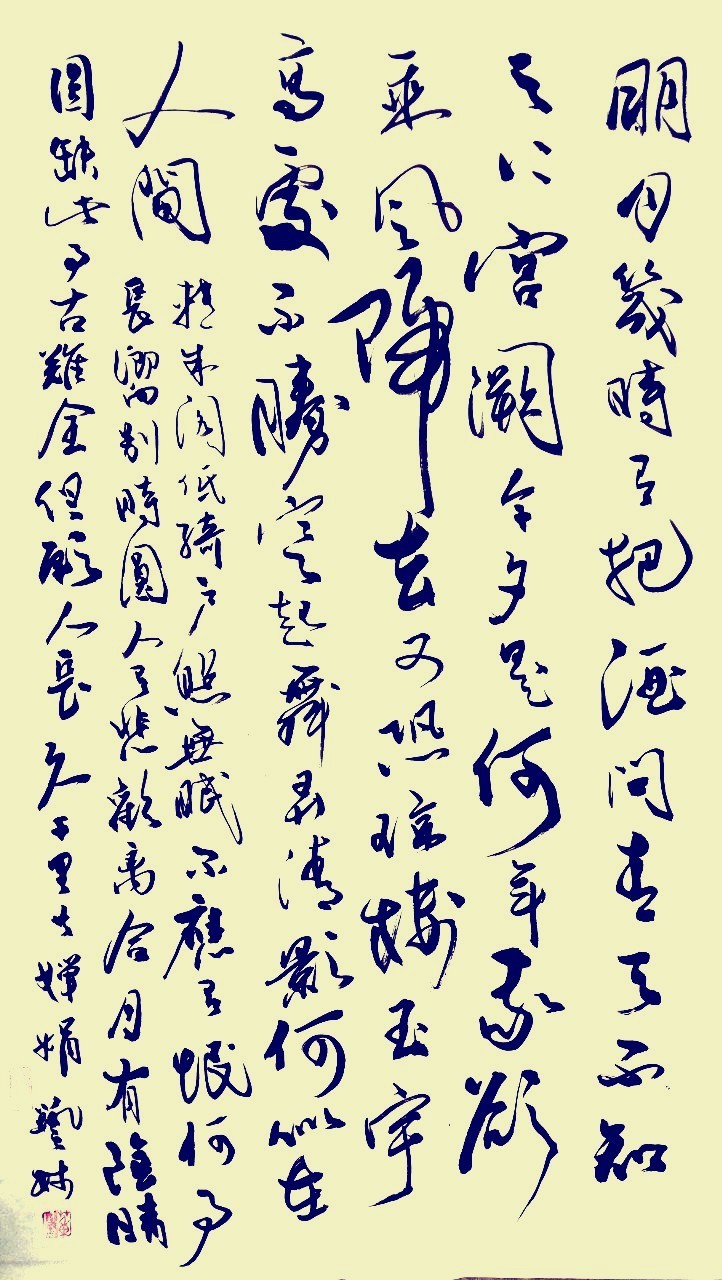 明月幾時有把酒問青天不知
天上宮闕今夕是何年我欲
乘風歸去又恐瓊樓玉宇
高處不勝寒起舞弄清影何似在
人間
轉朱閣低綺戶照無眠不應有恨何事
長向別時圓人有悲歡離合月有陰晴
圓缺此事古難全但願人長久千里共嬋娟